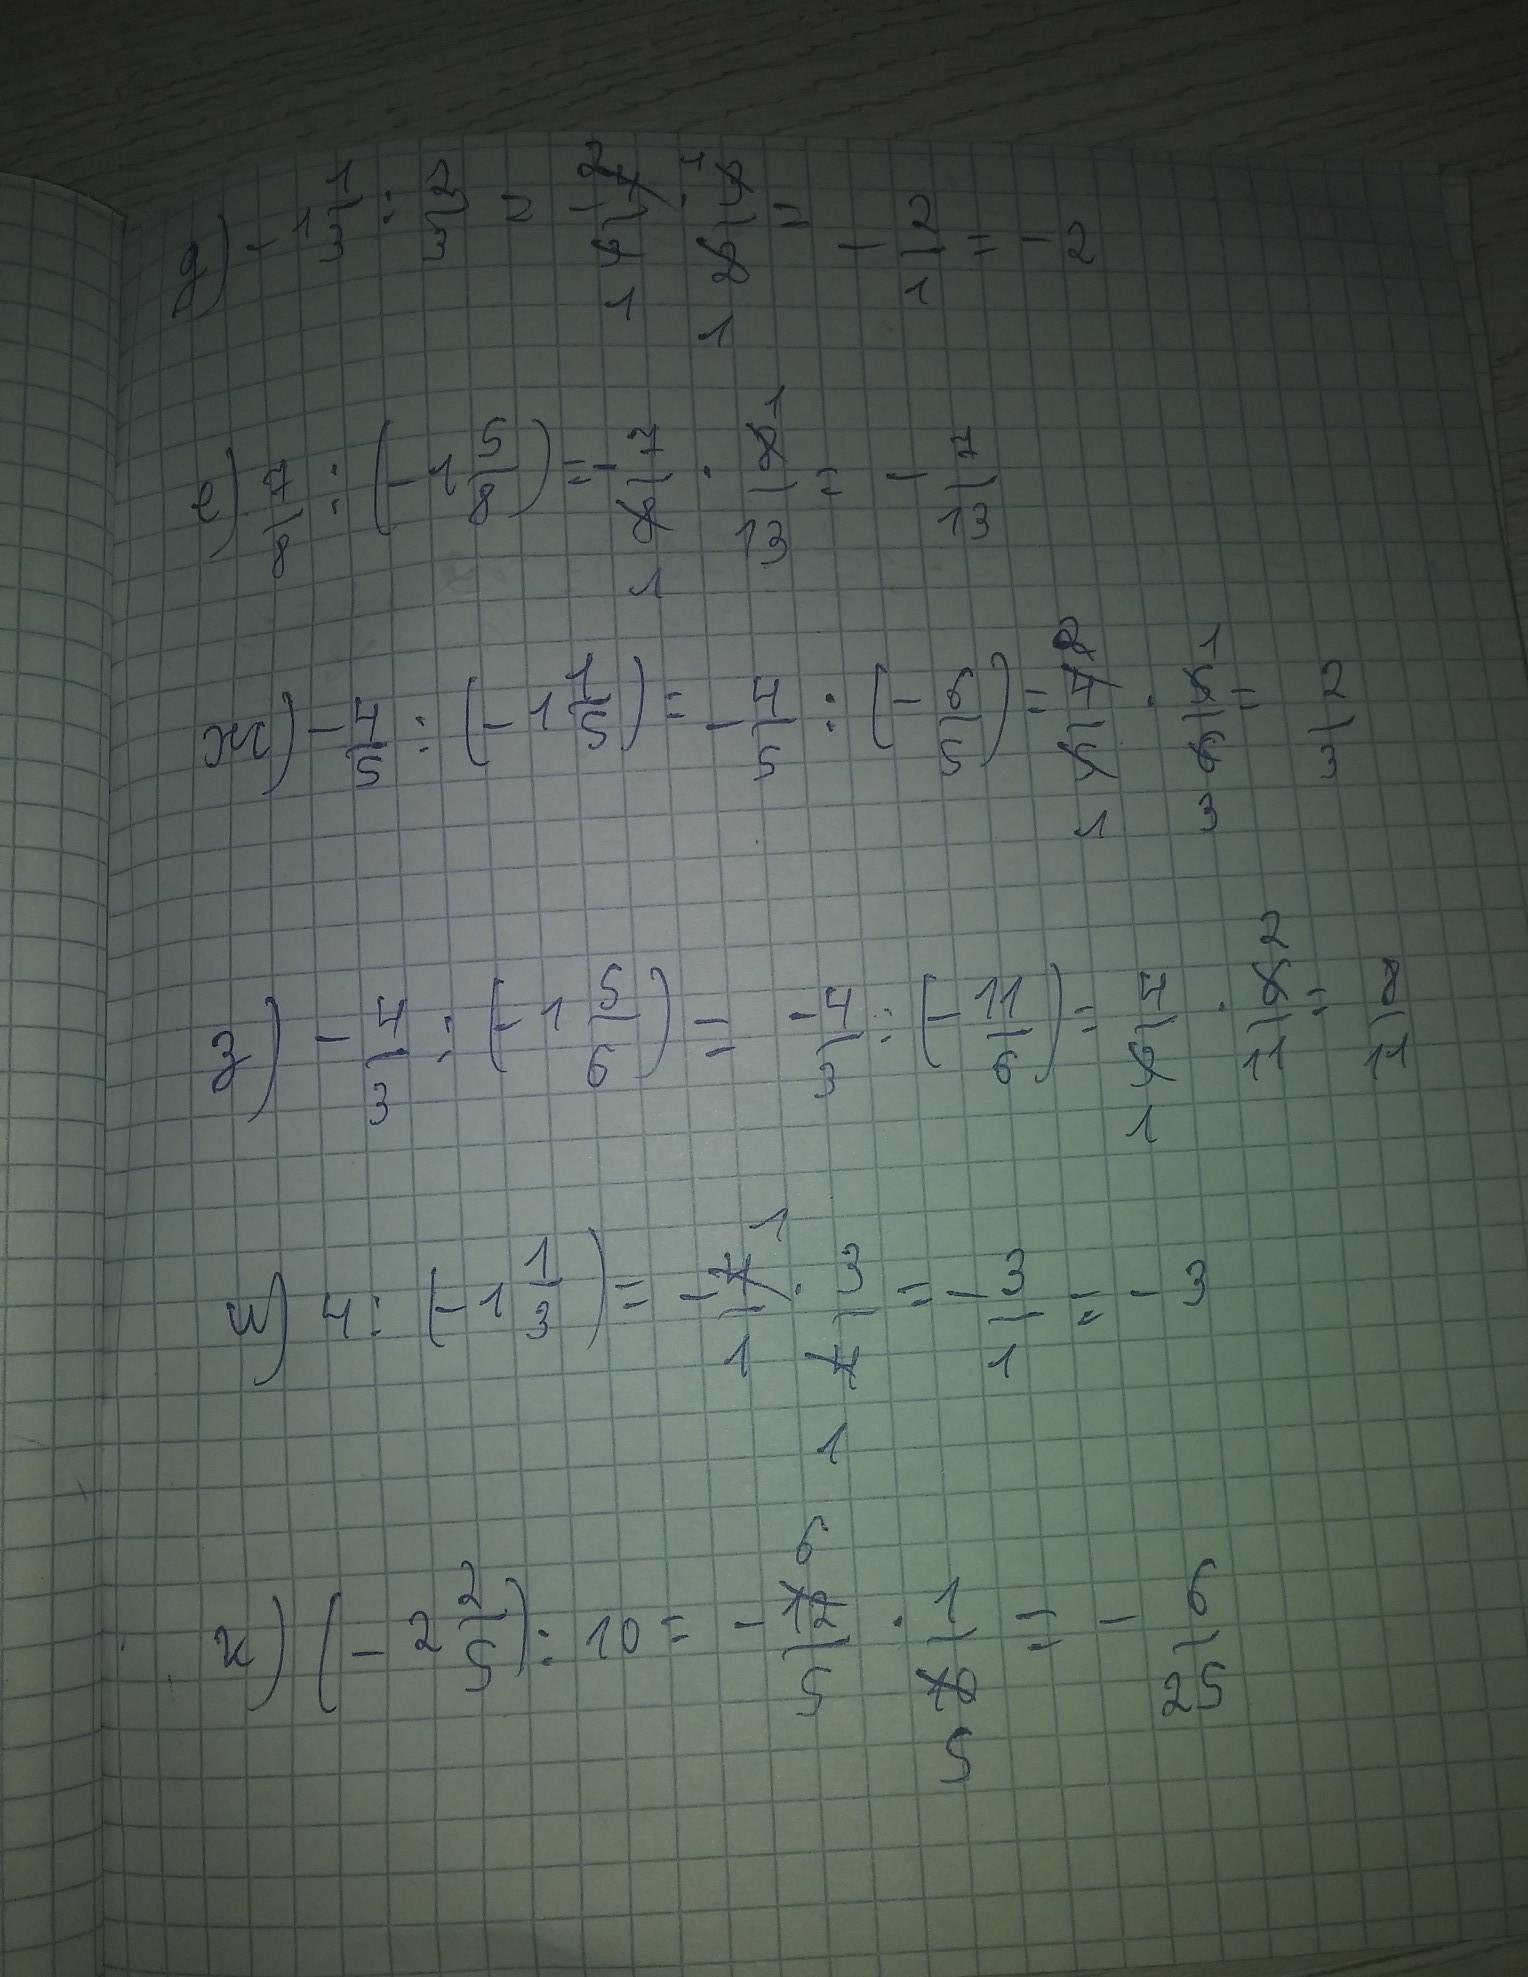 д) -1 1/3 : 2/3 = -4/3 · 3/2 = -2/1 = -2
е) 7/8 : (-1 5/8) = -7/8 · 8/13 = -7/13
ж) -4/5 : (-1 1/5) = -4/5 : (-6/5) = 4/5 · 5/6 = 2/3
з) -4/3 : (-1 5/6) = -4/3 : (-11/6) = 4/3 · 6/11 = 8/11
и) 4 : (-1 1/3) = -4/1 · 3/4 = -3/1 = -3
к) (-2 2/5) : 10 = -12/5 · 1/10 = -6/25